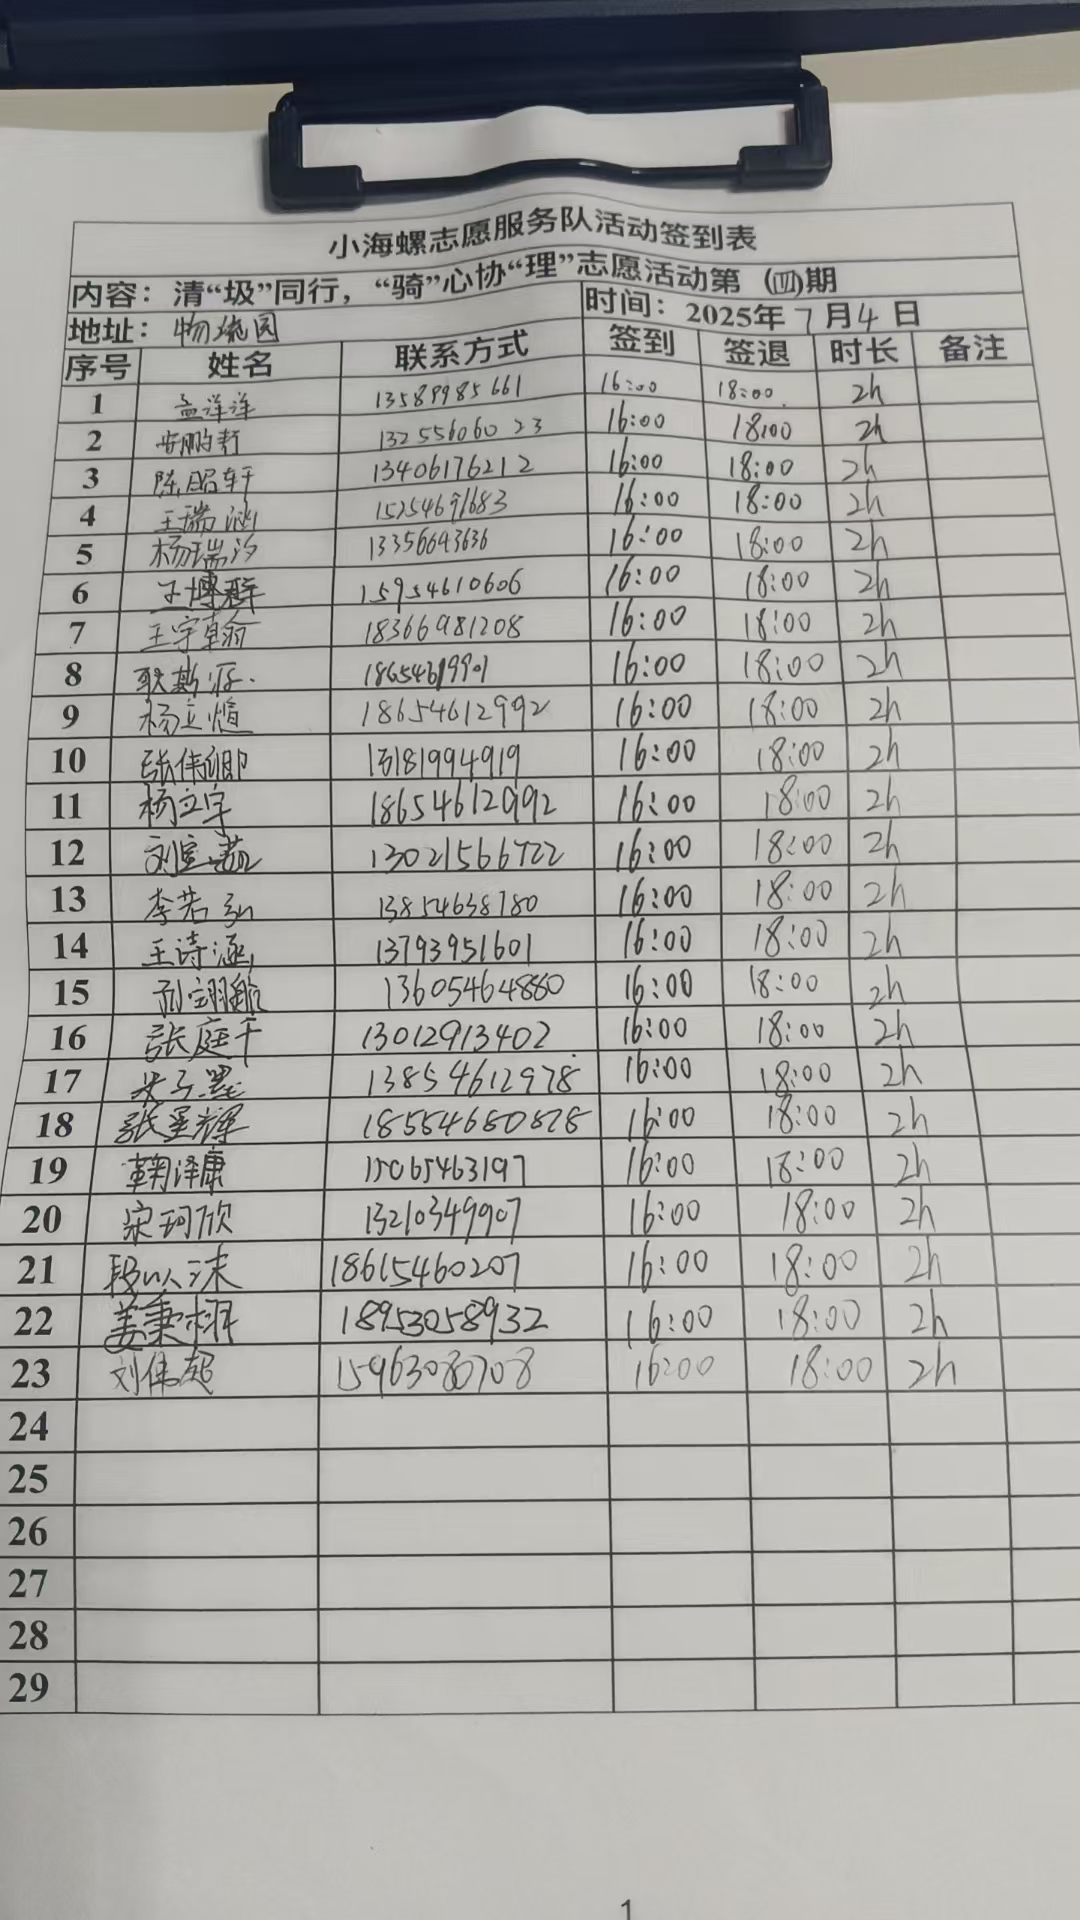 小海螺志愿服务队活动签到表
内容：清“圾”同行，“骑”心协“理”志愿活动第（四）期
地址：物流园 时间：2025年7月4日
序号 姓名 联系方式 签到 签退 时长 备注
1 孟洋洋 13589985661 16:00 18:00 2h
2 13255606023 16:00 18:00 2h
3 陈昭轩 13406176212 16:00 18:00 2h
4 王瑞涵 15254691683 16:00 18:00 2h
5 杨瑞汐 13356643636 16:00 18:00 2h
6 王博群 15954610606 16:00 18:00 2h
7 王宇翰 18366981208 16:00 18:00 2h
8 16:00 18:00 2h
9 杨立煊 18654612992 16:00 18:00 2h
10 张伟卿 13181994919 16:00 18:00 2h
11 杨立宇 18654612992 16:00 18:00 2h
12 13021566722 16:00 18:00 2h
13 李若弘 13854638780 16:00 18:00 2h
14 王诗涵 13793951601 16:00 18:00 2h
15 13605464880 16:00 18:00 2h
16 张庭千 13012913402 16:00 18:00 2h
17 13854612978 16:00 18:00 2h
18 张圣辉 18554680828 16:00 18:00 2h
19 鞠泽康 15065463197 16:00 18:00 2h
20 宋珂欣 13210349907 16:00 18:00 2h
21 段以沫 18615460207 16:00 18:00 2h
22 姜秉栩 18953058932 16:00 18:00 2h
23 刘伟超 15963080708 16:00 18:00 2h
24
25
26
27
28
29
1